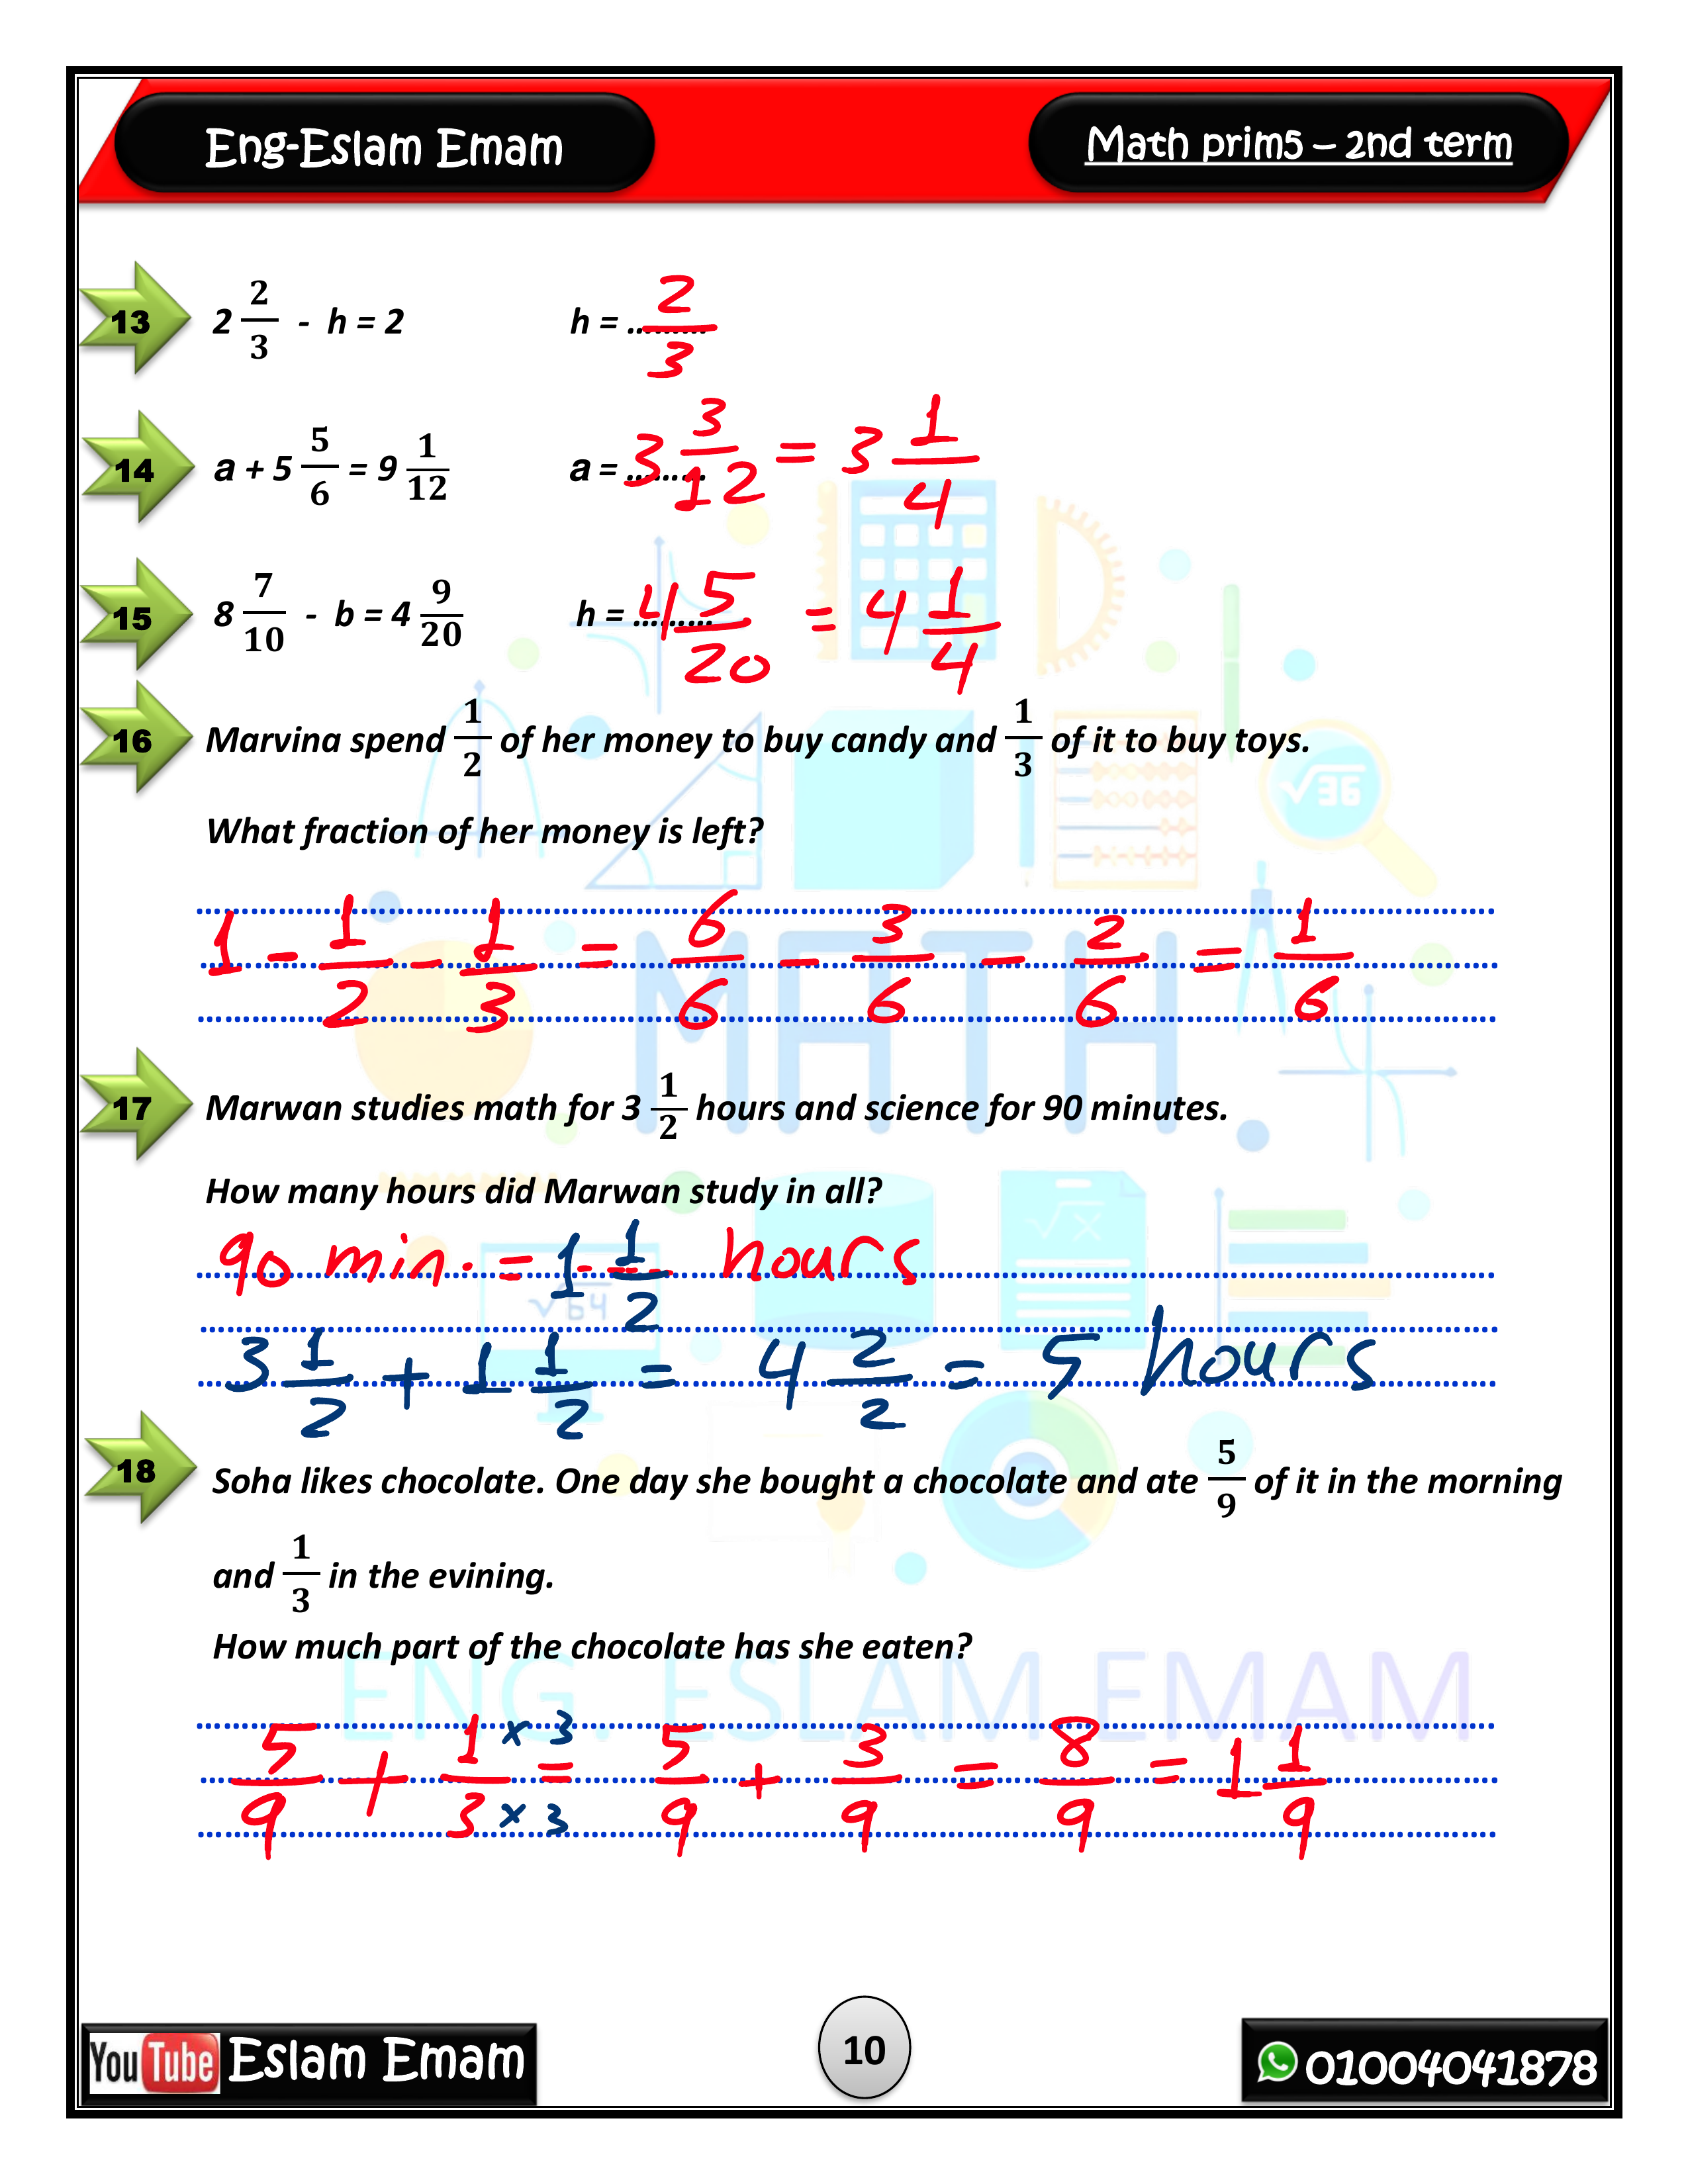 Eng-Eslam Emam
Math prim5 – 2nd term
13 2 2/3 - h = 2 h = ......... 2/3
14 a + 5 5/6 = 9 1/12 a = ......... 3 3/12 = 3 1/4
15 8 7/10 - b = 4 9/20 h = ......... 4 5/20 = 4 1/4
16 Marvina spend 1/2 of her money to buy candy and 1/3 of it to buy toys.
What fraction of her money is left?
1 - 1/2 - 1/3 = 6/6 - 3/6 - 2/6 = 1/6
17 Marwan studies math for 3 1/2 hours and science for 90 minutes.
How many hours did Marwan study in all?
90 min. = 1 1/2 hours
3 1/2 + 1 1/2 = 4 2/2 = 5 hours
18 Soha likes chocolate. One day she bought a chocolate and ate 5/9 of it in the morning
and 1/3 in the evining.
How much part of the chocolate has she eaten?
5/9 + 1/3 × 3 × 3 = 5/9 + 3/9 = 8/9 = 1 1/9
√36
MATH
√x
√64
ENG. ESLAM EMAM
YouTube Eslam Emam
10
01004041878